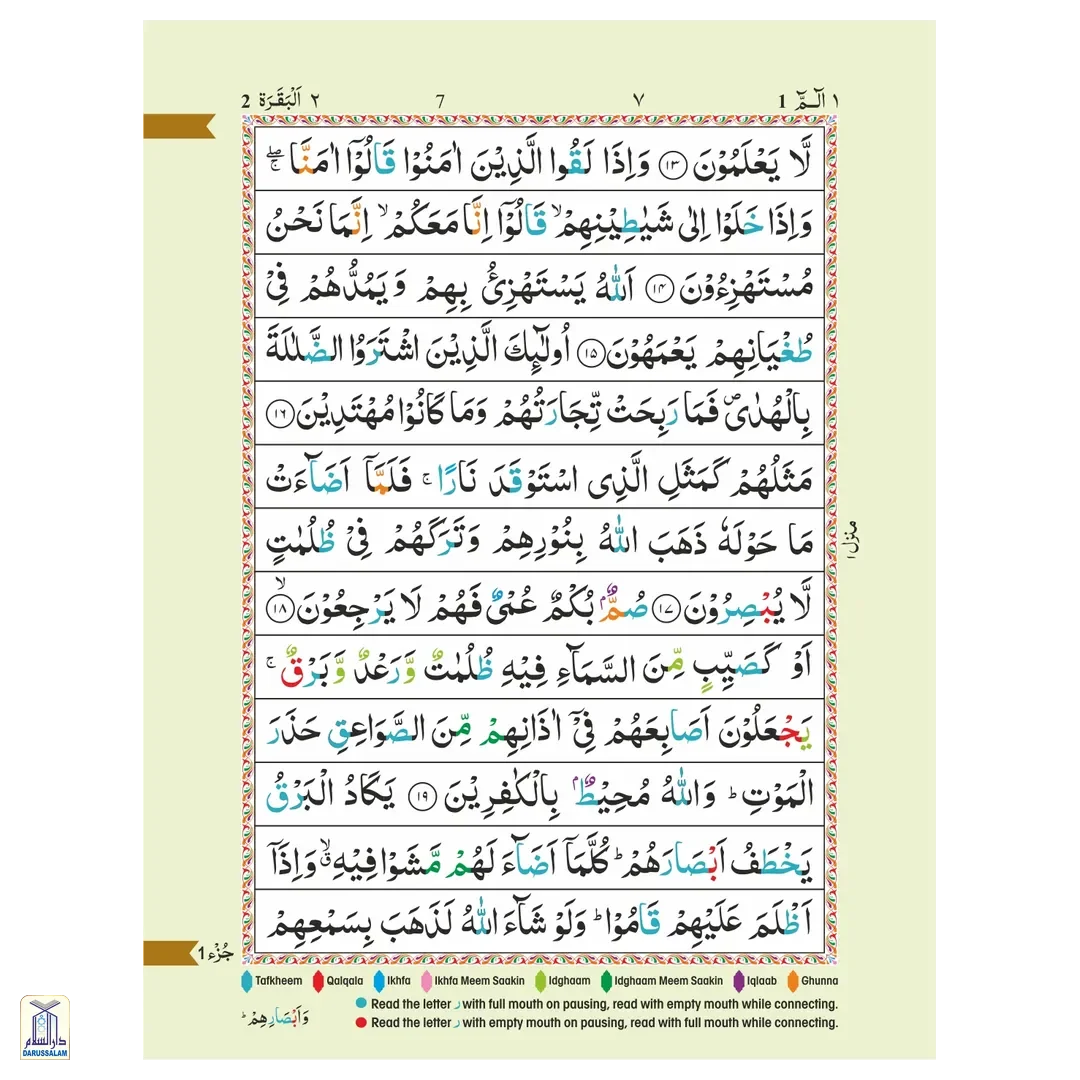 ١ الٓمّٓ 1 ٧ 7 ٢ اَلْبَقَرَة 2
لَّا يَعْلَمُوْنَ ﴿١٣﴾ وَاِذَا لَقُوا الَّذِيْنَ اٰمَنُوْا قَالُوْٓا اٰمَنَّا ۖۚ
وَاِذَا خَلَوْا اِلٰى شَيٰطِيْنِهِمْ ۙ قَالُوْٓا اِنَّا مَعَكُمْ ۙ اِنَّمَا نَحْنُ
مُسْتَهْزِءُوْنَ ﴿١٤﴾ اَللّٰهُ يَسْتَهْزِئُ بِهِمْ وَيَمُدُّهُمْ فِيْ
طُغْيَانِهِمْ يَعْمَهُوْنَ ﴿١٥﴾ اُولٰٓئِكَ الَّذِيْنَ اشْتَرَوُا الضَّلٰلَةَ
بِالْهُدٰى ۪ فَمَا رَبِحَتْ تِّجَارَتُهُمْ وَمَا كَانُوْا مُهْتَدِيْنَ ﴿١٦﴾
مَثَلُهُمْ كَمَثَلِ الَّذِى اسْتَوْقَدَ نَارًا ۚ فَلَمَّآ اَضَآءَتْ
مَا حَوْلَهٗ ذَهَبَ اللّٰهُ بِنُوْرِهِمْ وَتَرَكَهُمْ فِيْ ظُلُمٰتٍ
لَّا يُبْصِرُوْنَ ﴿١٧﴾ صُمٌّۢ بُكْمٌ عُمْىٌ فَهُمْ لَا يَرْجِعُوْنَ ﴿١٨﴾ ۙ
اَوْ كَصَيِّبٍ مِّنَ السَّمَآءِ فِيْهِ ظُلُمٰتٌ وَّرَعْدٌ وَّبَرْقٌ ۚ
يَجْعَلُوْنَ اَصَابِعَهُمْ فِيْٓ اٰذَانِهِمْ مِّنَ الصَّوَاعِقِ حَذَرَ
الْمَوْتِ ؕ وَاللّٰهُ مُحِيْطٌۢ بِالْكٰفِرِيْنَ ﴿١٩﴾ يَكَادُ الْبَرْقُ
يَخْطَفُ اَبْصَارَهُمْ ؕ كُلَّمَآ اَضَآءَ لَهُمْ مَّشَوْا فِيْهِ ۙۗ وَاِذَآ
اَظْلَمَ عَلَيْهِمْ قَامُوْا ؕ وَلَوْ شَآءَ اللّٰهُ لَذَهَبَ بِسَمْعِهِمْ
منزل ١
جُزْء 1
Tafkheem Qalqala Ikhfa Ikhfa Meem Saakin Idghaam Idghaam Meem Saakin Iqlaab Ghunna
Read the letter ر with full mouth on pausing, read with empty mouth while connecting.
Read the letter ر with empty mouth on pausing, read with full mouth while connecting.
وَاَبْصَارِهِمْ ؕ
دارالسلام
DARUSSALAM